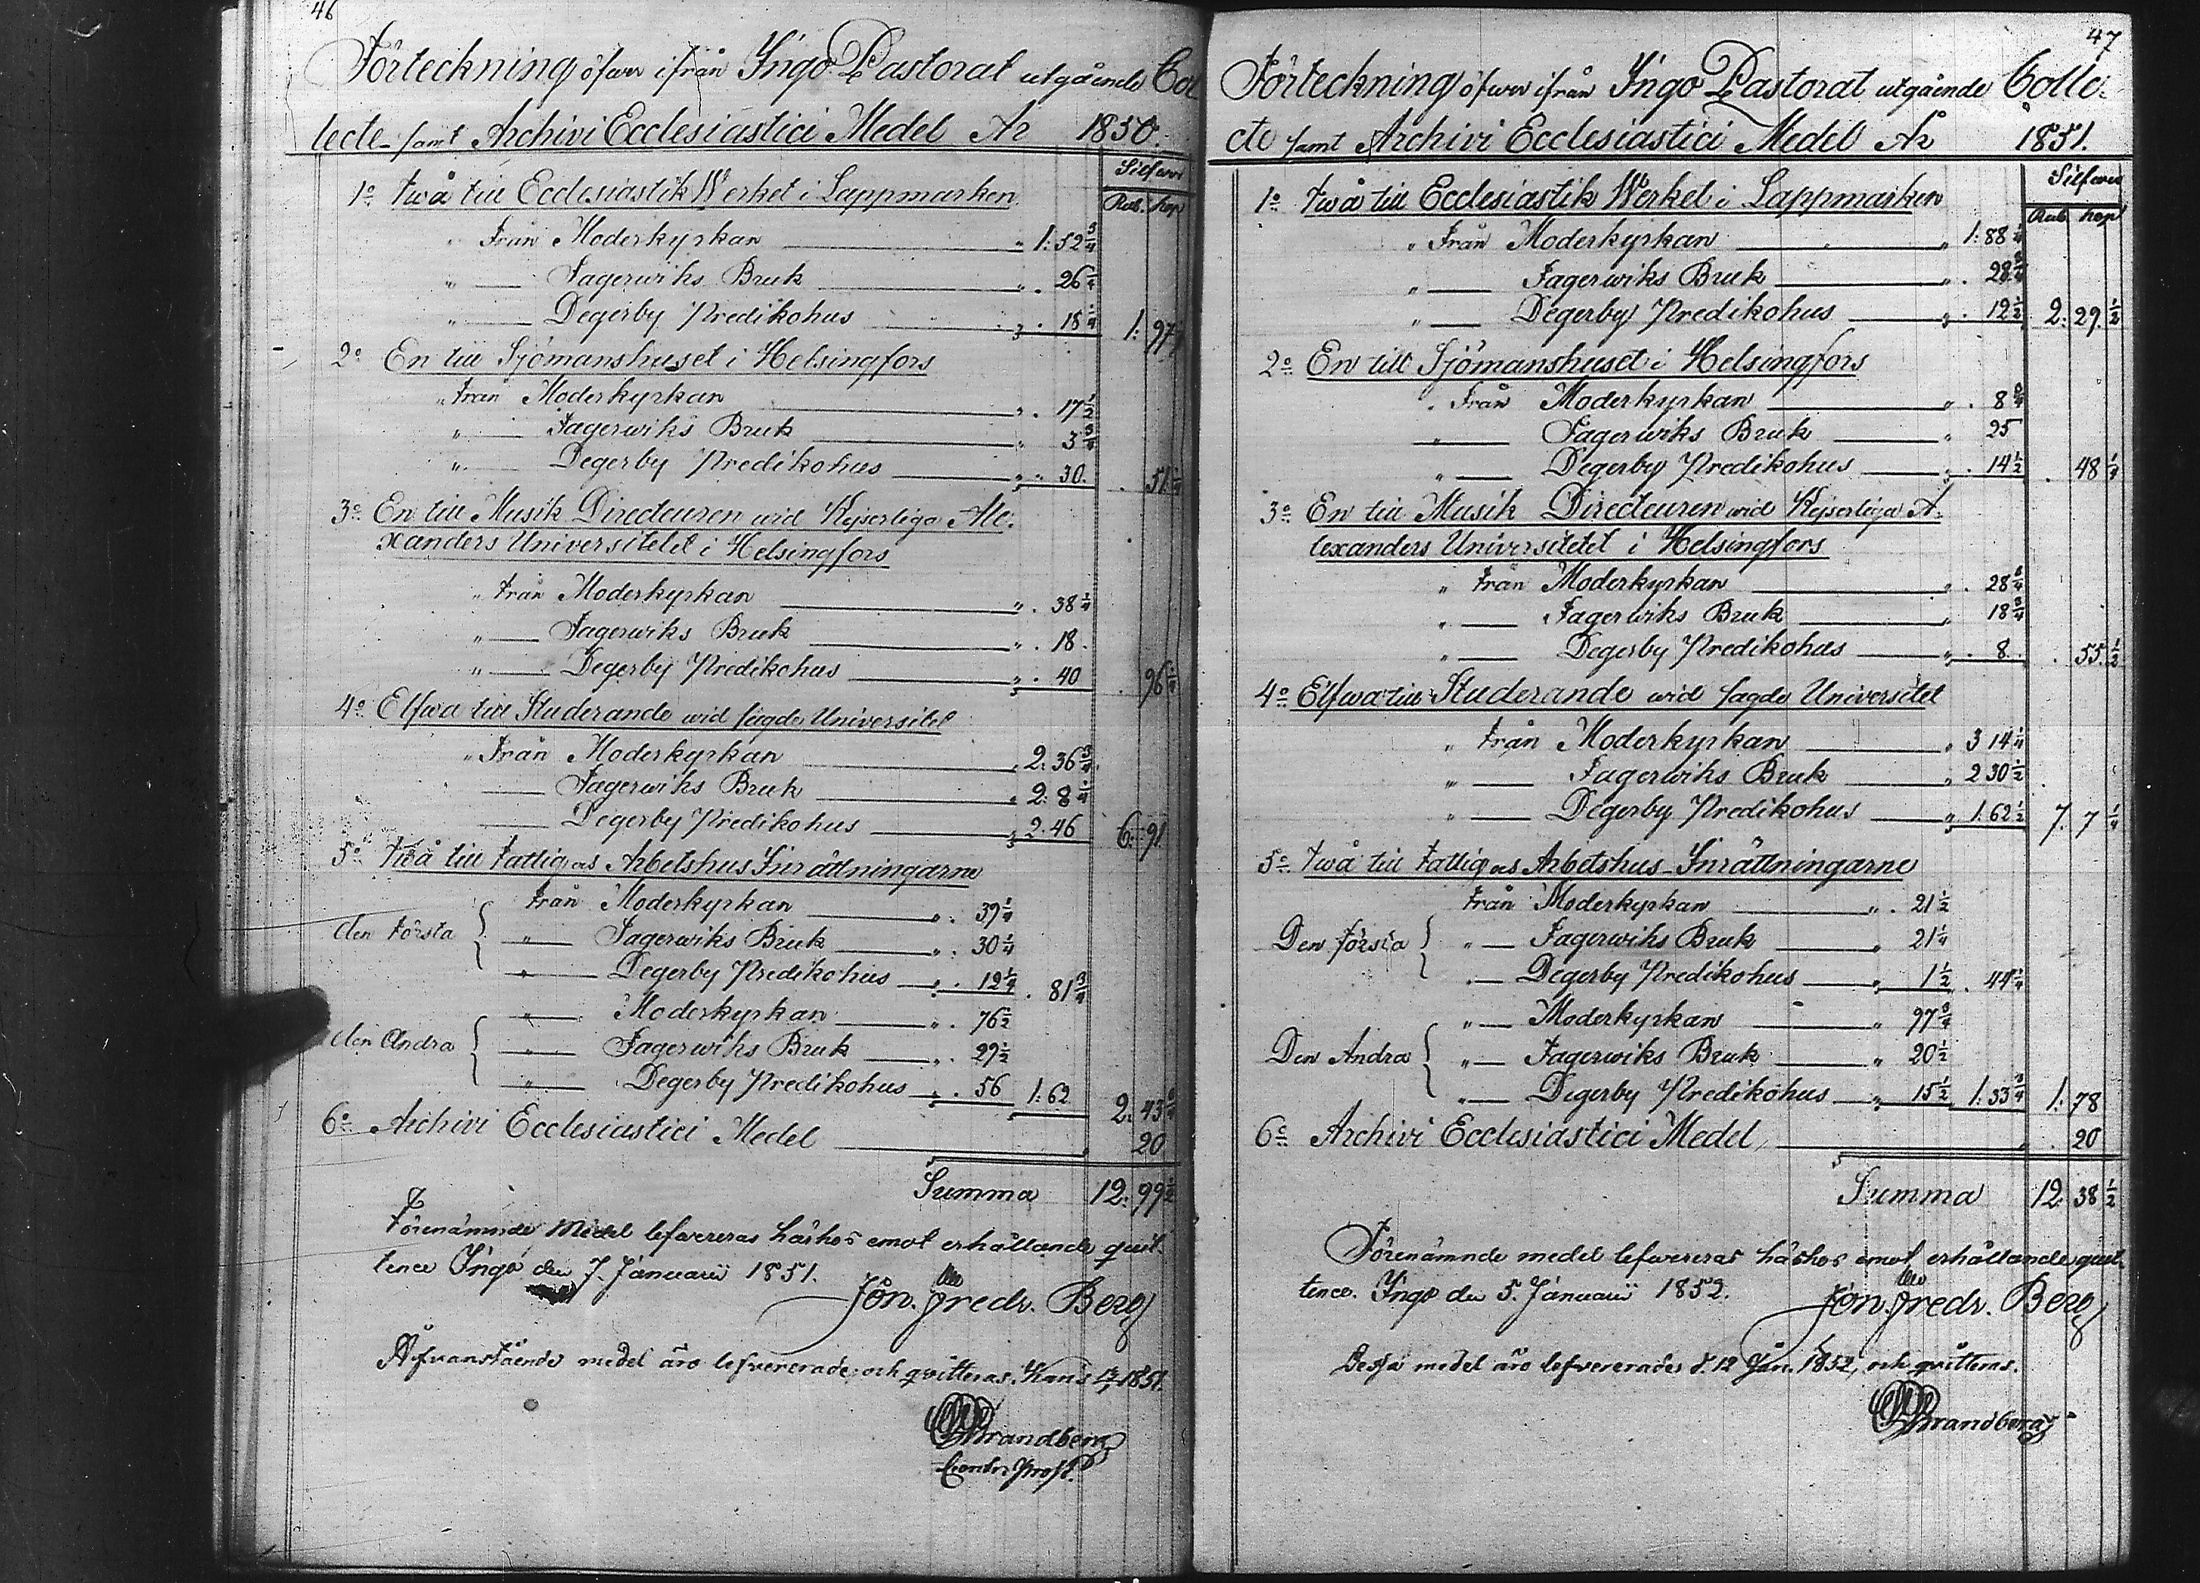 46
Förteckning öfwer ifrån Ingo Pastorat utgående Col
lecte- samt Archivi Ecclesiastici Medel År 1850.
Silfwer
Rub. kop
1o Två till Ecclesiastik Werket i Lappmarken
" Från Moderkyrkan " 1: 52 3/4
" Fagerwiks Bruk " . 26 1/4
" Degerby Predikohus " . 18 1/4 1: 97 1/4
2o En till Sjömanshuset i Helsingfors
" Från Moderkyrkan " . 17 1/2
" Fagerwiks Bruk " 3 3/4
" Degerby Predikohus " " 30. . 51 1/4
3o En till Musik Directeuren wid Kejserliga Ale-
xanders Universitetet i Helsingfors
" Från Moderkyrkan " . 38 1/4
" Fagerwiks Bruk " . 18.
" Degerby Predikohus " . 40 . 96 1/4
4o Elfwa till Studerande wid sagde Universitet
" Från Moderkyrkan " 2: 36 3/4
Fagerwiks Bruk " 2: 8 1/4
Degerby Predikohus " 2. 46 6: 91
5o Två till Fattig as Arbetshus Inrättningarne
Från Moderkyrkan " . 39 1/4
den Första { " Fagerwiks Bruk " . 30 1/4
" Degerby Predikohus " . 12 1/4 . 81 3/4
" Moderkyrkan " . 76 1/2
den Andra { " Fagerwiks Bruk " . 29 1/2
" Degerby Predikohus " . 56 1: 62 2: 43 3/4
6o Archivi Ecclesiastici Medel " 20
Summa 12: 99 1/2
Förenämnde Medel lefwereras härhos emot erhållande quit-
tence Ingo den 7. Januarii 1851.
Jon. Fredr. Berg
Ofvanstående medel äro lefvererade och qvitteras. Karis 13/1 1851.
Strandberg
Contr. Prost.
47
Förteckning öfwer ifrån Ingo Pastorat utgående Colle-
cte samt Archivi Ecclesiastici Medel År 1851.
Silfwer
Rub kop
1o Två till Ecclesiastik Werket i Lappmarken
" Från Moderkyrkan " 1: 88 1/4
" Fagerwiks Bruk " . 28 3/4
" Degerby Predikohus " . 12 1/2 2: 29 1/2
2o En till Sjömanshuset i Helsingfors
" Från Moderkyrkan " . 8 3/4
" Fagerwiks Bruk " 25
" Degerby Predikohus " . 14 1/2 . 48 1/4
3o En till Musik Directeuren wid Kejserliga A-
lexanders Universitetet i Helsingfors
" Från Moderkyrkan " . 28 3/4
" Fagerwiks Bruk " 18 3/4
" Degerby Predikohus " . 8. . 55 1/2
4o Elfwa till Studerande wid sagde Universitet
" Från Moderkyrkan " 3 14 1/4
" Fagerwiks Bruk " 2 30 1/2
" Degerby Predikohus " 1. 62 1/2 7. 7 1/4
5o Två till Fattig as Arbetshus Inrättningarne
Från Moderkyrkan " . 21 1/2
Den första { " Fagerwiks Bruk " 21 1/4
" Degerby Predikohus " 1 1/2 . 44 1/4
" Moderkyrkan " 97 3/4
Den Andra { " Fagerwiks Bruk " 20 1/2
" Degerby Predikohus " 15 1/2 1: 33 3/4 1: 78
6o Archivi Ecclesiastici Medel " . 20
Summa 12. 38 1/2
Förenämnde medel lefwereras härhos emot erhållande quit-
tence. Ingo den 5. Januarii 1852.
Jon. Fredr. Berg
Dessa medel äro lefvererade d. 12 Jan. 1852, och qvitteras.
Strandberg